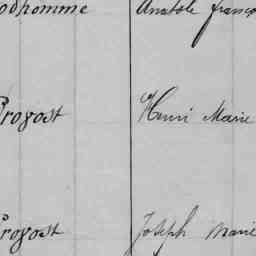 odhomme Anatole franço
Provost Henri Marie
Provost Joseph Marie